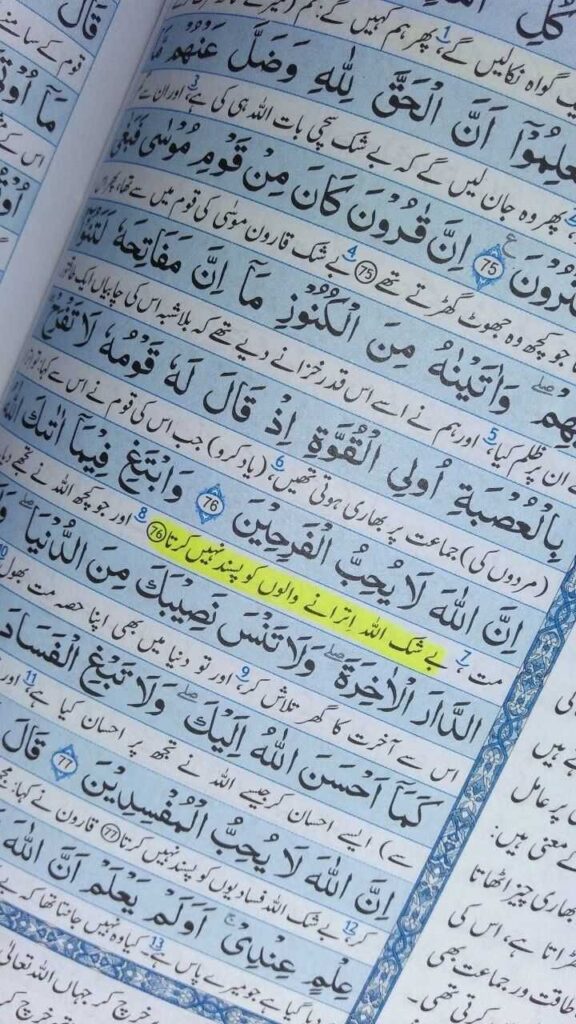 قَالَ
قوم کے سامنے
مَآ اُوْتِ
اس کے
كُلِّ
گواہ نکالیں گے، پھر ہم کہیں گے: ہم
عَلِمُوْٓا اَنَّ الْحَقَّ لِلّٰهِ وَضَلَّ عَنْهُمْ
پھر وہ جان لیں گے کہ بے شک سچی بات اللہ ہی کی ہے، اور ان سے
يَفْتَرُوْنَ ﴿75﴾ اِنَّ قَارُوْنَ كَانَ مِنْ قَوْمِ مُوْسٰى فَبَغٰى
جو کچھ وہ جھوٹ گھڑتے تھے ﴿75﴾ بے شک قارون موسٰی کی قوم میں سے تھا، پھر اس
عَلَيْهِمْ وَاٰتَيْنٰهُ مِنَ الْكُنُوْزِ مَآ اِنَّ مَفَاتِحَهٗ لَتَنُوْٓاُ
نے ان پر ظلم کیا، اور ہم نے اسے اس قدر خزانے دیے تھے کہ بلاشبہ اس کی چابیاں ایک طاقتور
بِالْعُصْبَةِ اُولِي الْقُوَّةِ اِذْ قَالَ لَهٗ قَوْمُهٗ لَا تَفْرَحْ
(مردوں کی) جماعت پر بھاری ہوتی تھیں، (یاد کرو) جب اس کی قوم نے اس سے کہا: تو اترا
اِنَّ اللّٰهَ لَا يُحِبُّ الْفَرِحِيْنَ ﴿76﴾ وَابْتَغِ فِيْمَآ اٰتٰىكَ اللّٰهُ
مت، بے شک اللہ اِترانے والوں کو پسند نہیں کرتا ﴿76﴾ اور جو کچھ اللہ نے تجھے دیا
الدَّارَ الْاٰخِرَةَ وَلَا تَنْسَ نَصِيْبَكَ مِنَ الدُّنْيَا وَ
اس سے آخرت کا گھر تلاش کر، اور تو دنیا میں بھی اپنا حصہ مت بھول
كَمَآ اَحْسَنَ اللّٰهُ اِلَيْكَ وَلَا تَبْغِ الْفَسَادَ
سے) ایسے احسان کر جیسے اللہ نے تجھ پر احسان کیا ہے، اور
اِنَّ اللّٰهَ لَا يُحِبُّ الْمُفْسِدِيْنَ ﴿77﴾ قَالَ
کر، بے شک اللہ فسادیوں کو پسند نہیں کرتا ﴿77﴾ قارون نے کہا:
عِلْمٍ عِنْدِيْ اَوَلَمْ يَعْلَمْ اَنَّ اللّٰهَ
دیا گیا ہے جو میرے پاس ہے۔ کیا وہ نہیں جانتا تھا کہ بے
خرچ کر جہاں اللہ تعالیٰ
کی
ہے ہیں
پر عامل
کے معنی ہیں:
بھاری چیز اٹھاتا
ہے، اس کی
طاقت ور جماعت بھی
کرتی تھی۔